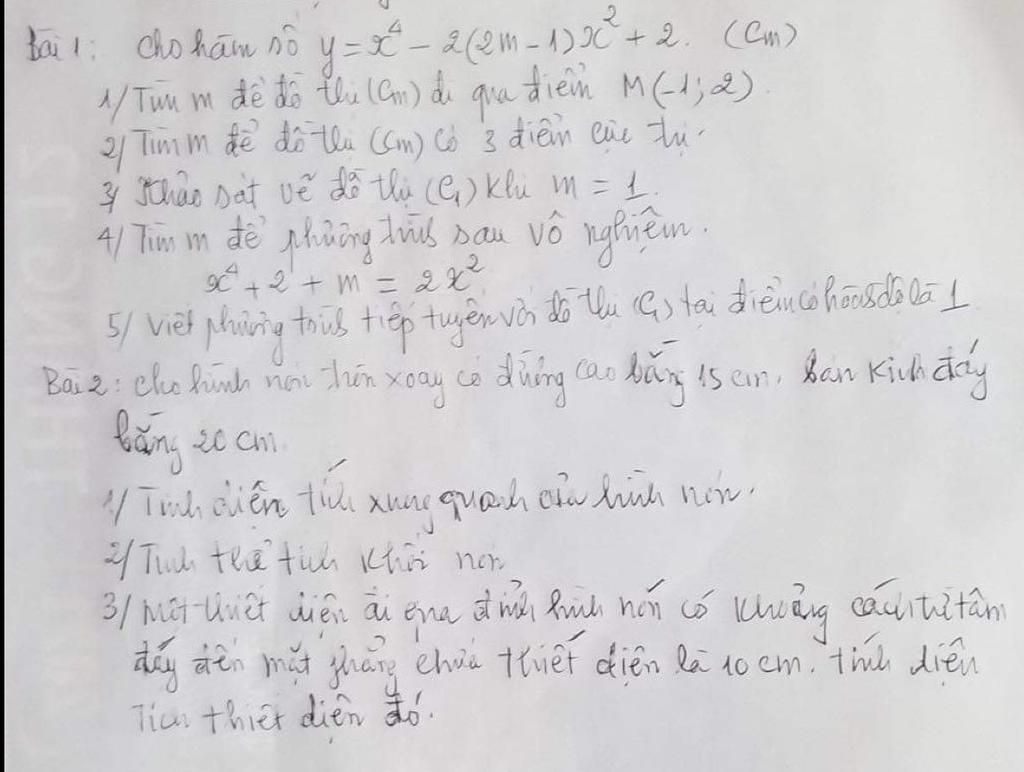 Bài 1: Cho hàm số y = x⁴ - 2(2m - 1)x² + 2. (Cm)
1/ Tìm m để đồ thị (Cm) đi qua điểm M(-1; 2).
2/ Tìm m để đồ thị (Cm) có 3 điểm cực trị.
3/ Khảo sát vẽ đồ thị (C₁) khi m = 1.
4/ Tìm m để phương trình sau vô nghiệm.
x⁴ + 2 + m = 2x²
5/ Viết phương trình tiếp tuyến với đồ thị (C₁) tại điểm có hoành độ là 1
Bài 2: Cho hình nón tròn xoay có đường cao bằng 15 cm, bán kính đáy
bằng 20 cm.
1/ Tính diện tích xung quanh của hình nón.
2/ Tính thể tích khối nón
3/ Một thiết diện đi qua đỉnh hình nón có khoảng cách từ tâm
đáy đến mặt phẳng chứa thiết diện là 10 cm. tính diện
tích thiết diện đó.